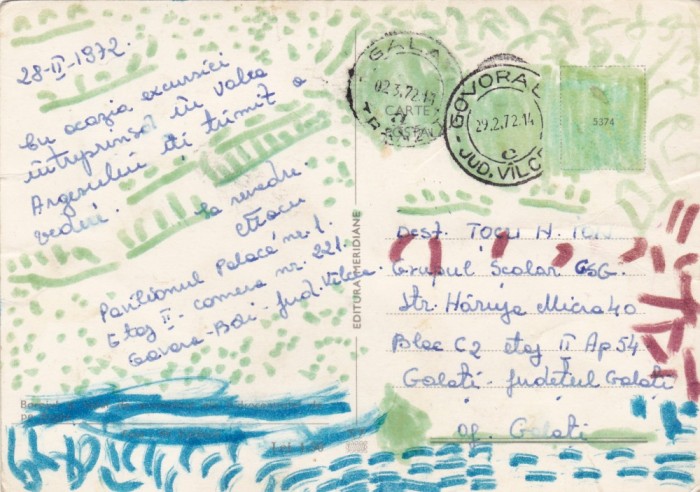 28-II-1972.
Cu ocazia excursiei
întreprinsă în Valea
Argeșului îți trimit o
vedere. La revedere.
Pavilionul Palace nr. 1.
Etaj II - camera nr. 221.
Govora-Băi - jud. Vîlcea.
EDITURA MERIDIANE
GALA
02.3.72.1
CARTE
POȘTALĂ
GOVORA
29.2.72.14
C
JUD. VÎLCE
5374
Dest. TOCU N. ION
Grupul Școlar CSG.
Str. Hăruja Micra 40
Bloc C2 etaj II Ap 54
Galați - Județul Galați
of. Galați